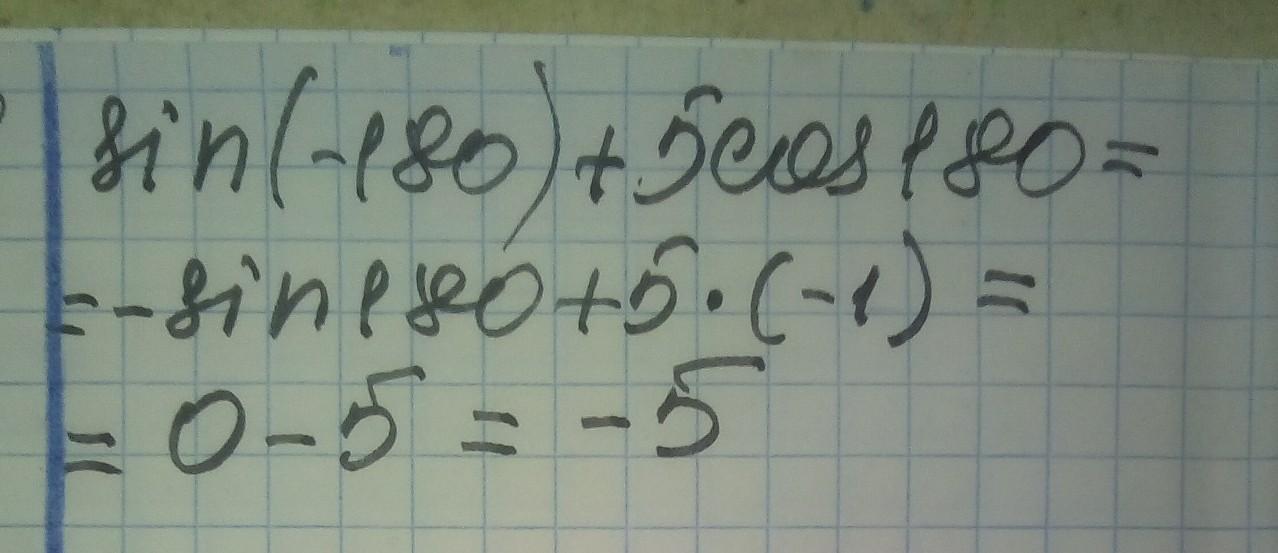 sin(-180)+5cos180=
=-sin180+5·(-1)=
=0-5=-5